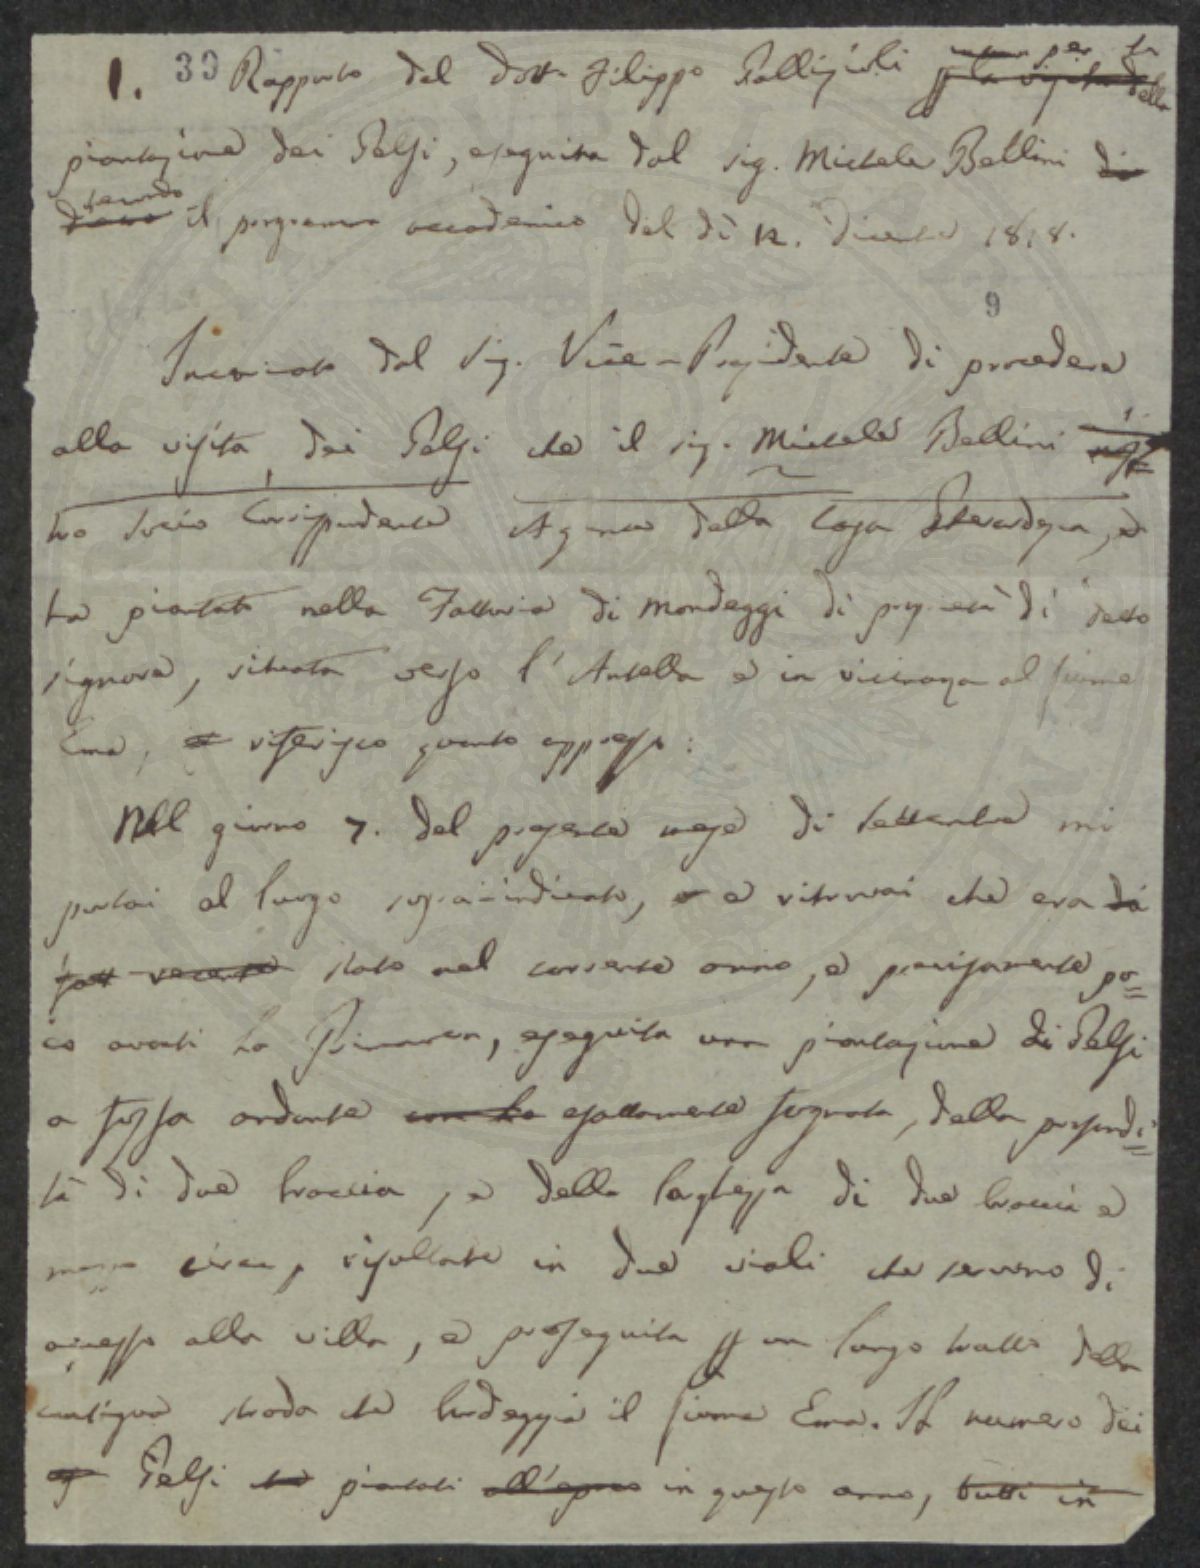 1. 39 Rapporto del Dott. Filippo Gallizioli per la
della
piantazione dei Gelsi, eseguita dal sig. Michele Bellini di
il programma accademico del dì 12. Dicembre 1818.
9
Incaricato dal Sig. Vice-Presidente di procedere
alla visita dei Gelsi che il sig. Michele Bellini
tro Socio Corrispondente della Casa e
ha piantati nella Fattoria di Mondeggi di proprietà di detto
signore, situata verso l'Antella e in vicinanza al fiume
Ema, riferisco quanto appresso:
Nell giorno 7. del presente mese di Settembre mi
portai al luogo sopra-indicato, e ritrovai che era
stato nel corrente anno, e precisamente po=
co avanti la Primavera, eseguita una piantazione di Gelsi
a fossa andante con la esattamente fognata, della profondi=
tà di due braccia, e della larghezza di due braccia e
mezzo circa, in due viali che servono di
accesso alla villa, e proseguita p un lungo tratto della
contigua strada che bordeggia il fiume Ema. Il numero dei
Gelsi piantati in questo anno, tutti in